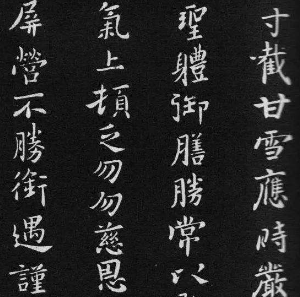 寸截甘雪應時嚴
聖體御膳勝常以
氣上頓乏勿勿慈恩
屏營不勝銜遇謹